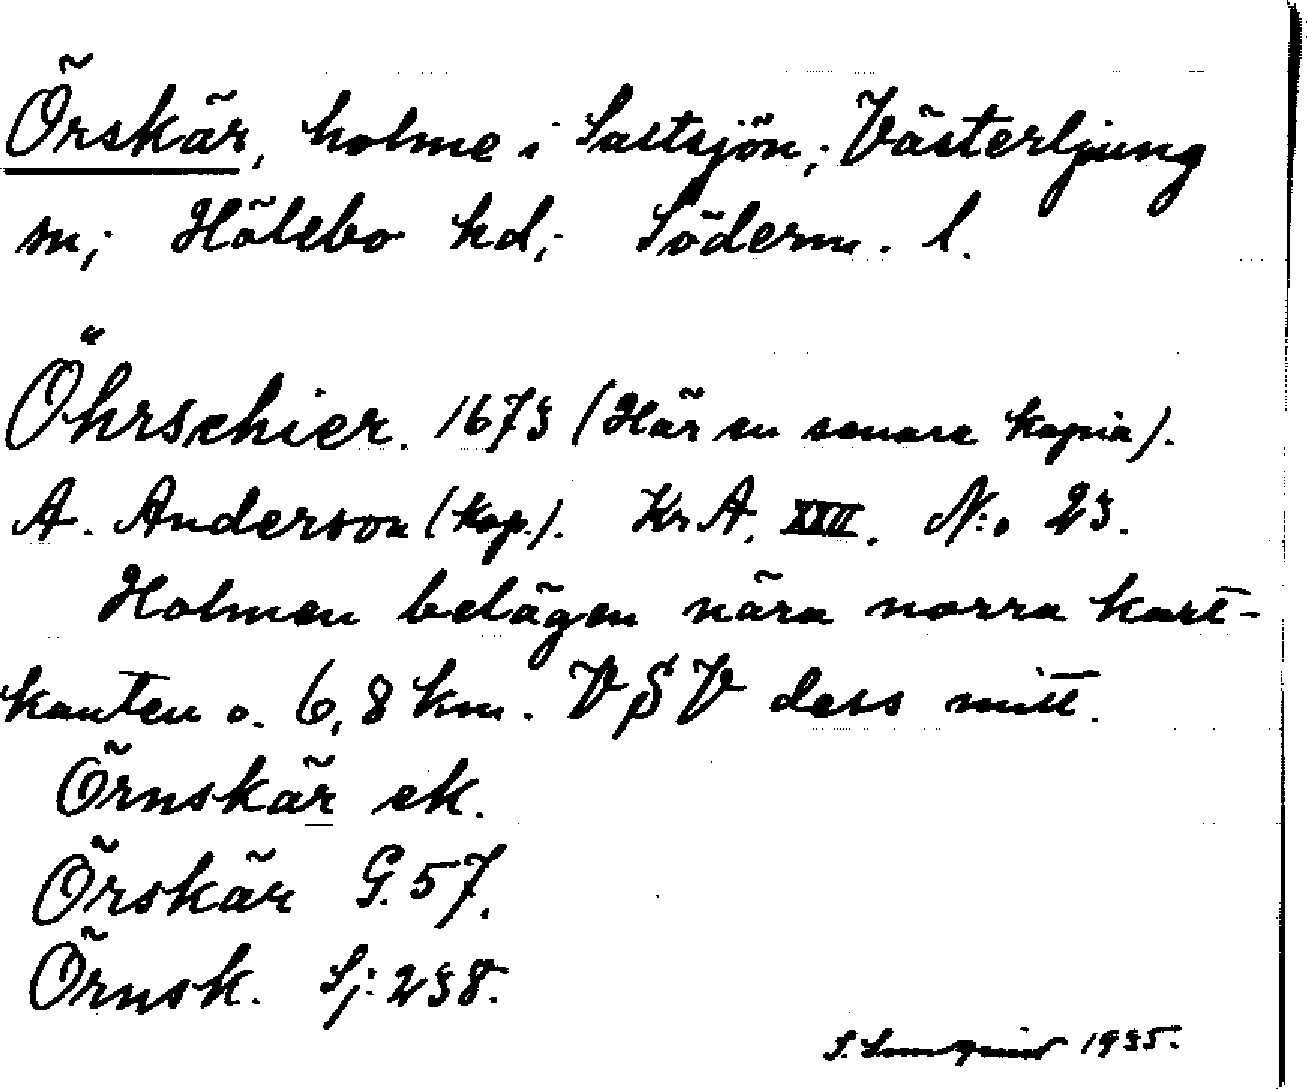 Örskär, holme i Saltsjön, Västerljung
sn, Hölebo hd, Söderm. l.
Öhrschier. 1673 (Här en senare kopia).
A. Anderson (kop.). Kr.A. XXII. N:o 23.
Holmen belägen nära norra kart-
kanten o. 6,8 km. VSV dess mitt.
Örnskär ek.
Örskär G. 57.
Örnsk. Sj: 238.
1935.